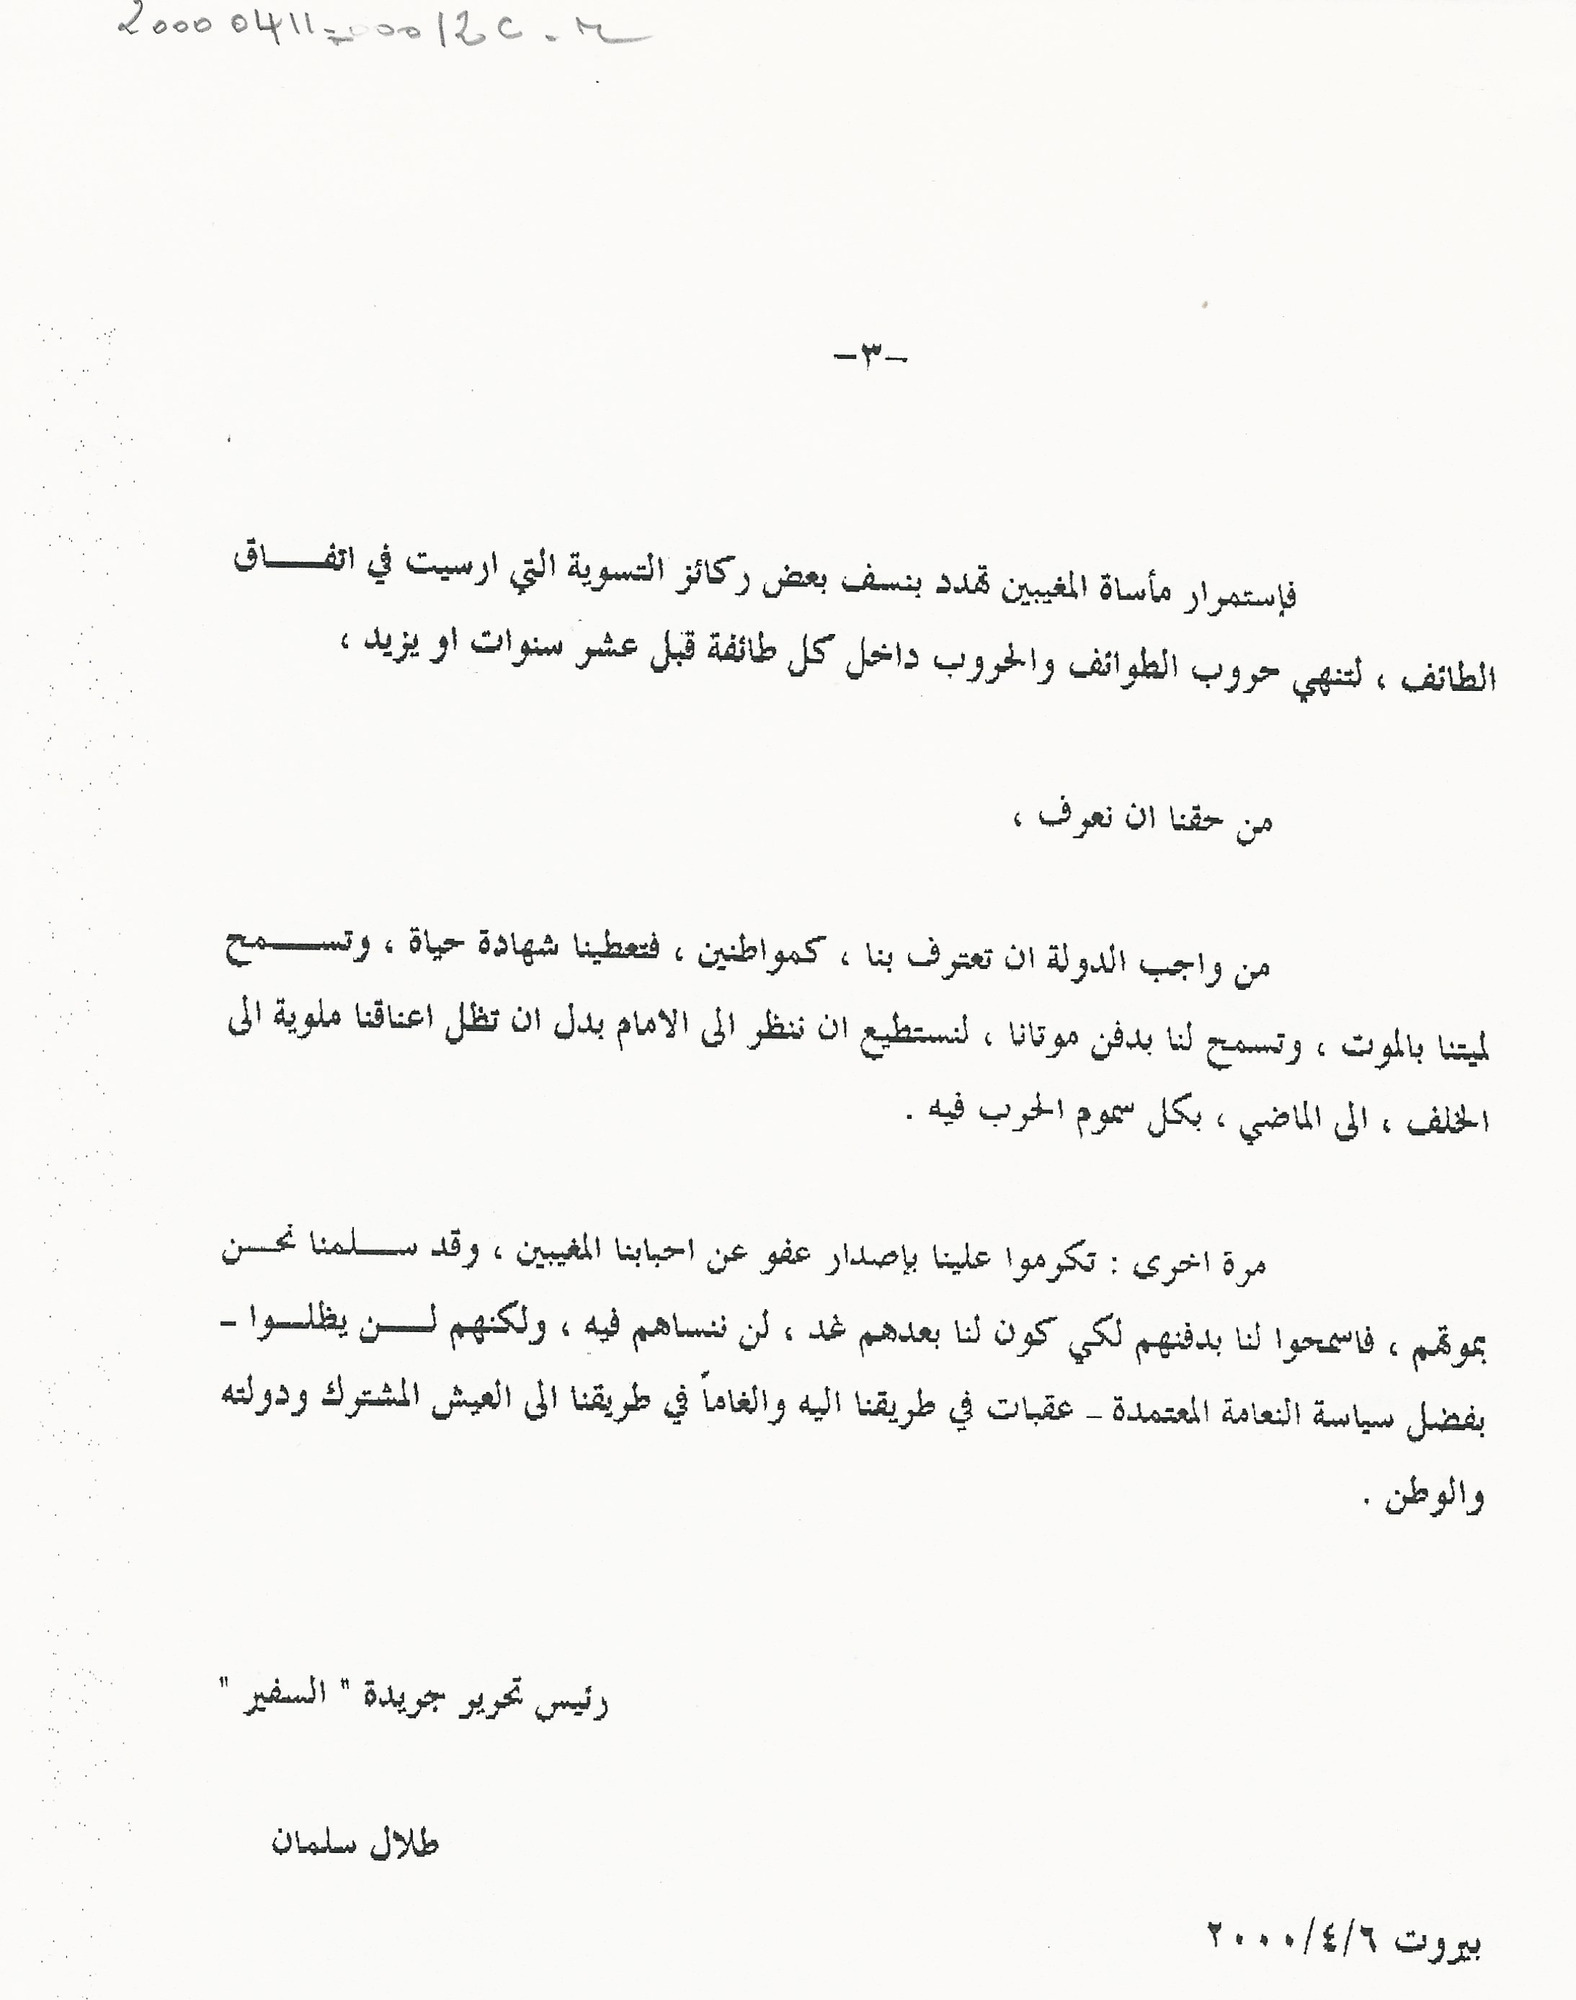 20000411_00012C_M
-٣-
فإستمرار مأساة المغيبين تهدد بنسف بعض ركائز التسوية التي ارسيت في اتفـــــاق
الطائف ، لتنهي حروب الطوائف والحروب داخل كل طائفة قبل عشر سنوات او يزيد ،
من حقنا ان نعرف ،
من واجب الدولة ان تعترف بنا ، كمواطنين ، فتعطينا شهادة حياة ، وتســــمح
لميتنا بالموت ، وتسمح لنا بدفن موتانا ، لنستطيع ان ننظر الى الامام بدل ان تظل اعناقنا ملوية الى
الخلف ، الى الماضي ، بكل سموم الحرب فيه .
مرة اخرى : تكرموا علينا بإصدار عفو عن احبابنا المغيبين ، وقد ســـلمنا نحـــن
بموتهم ، فاسمحوا لنا بدفنهم لكي كون لنا بعدهم غد ، لن ننساهم فيه ، ولكنهم لـــن يظلـــوا ـ
بفضل سياسة النعامة المعتمدة ـ عقبات في طريقنا اليه والغاماً في طريقنا الى العيش المشترك ودولته
والوطن .
رئيس تحرير جريدة " السفير "
طلال سلمان
بيروت ٢٠٠٠/٤/٦